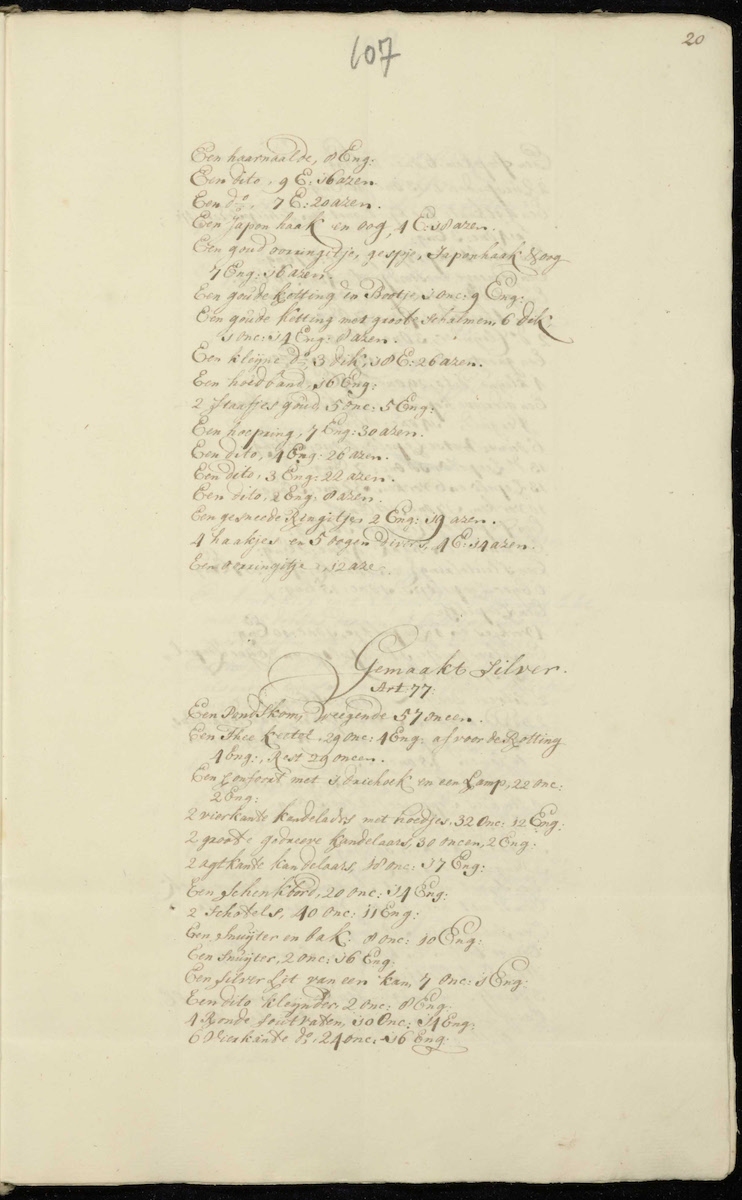 107
20
Een haarnaalde, 8 Eng:
Een dito, 9 E: 16 azen
Een do, 7 E: 20 azen.
Een Japon haak en oog, 4 E: 18 azen.
Een goud oorringitje, gespje, Japonhaak & oog
7 Eng: 16 azen.
Een goude ketting en Bootje, 1 onc: 9 Eng:
Een goude ketting met groote schalmen, 6 dik,
1 onc: 14 Eng: 8 azen.
Een kleyne do, 3 dik, 18 E: 26 azen.
Een hoedband, 16 Eng:
2 Staafjes goud, 5 onc: 5 Eng:
Een hoepring, 7 Eng: 30 azen.
Een dito, 4 Eng: 26 azen.
Een dito, 3 Eng: 22 azen.
Een dito, 2 Eng: 8 azen.
Een gesneede Ringitje, 2 Eng: 19 azen.
4 haakjes en 5 oogen divers, 4 E: 14 azen.
Een oorringitje, 12 aze
Gemaakt Silver.
Art: 77.
Een Kom, Weegende 57 oncen.
Een Thee keetel, 29 onc: 4 Eng: af voor de Rotting
4 Eng:, Rest 29 oncen.
Een Confoort met 1 driehoek en een Lamp, 22 onc:
2 Eng:
2 vierkante kandelaars met hoedjes, 32 onc: 12 Eng:
2 groote kandelaars, 30 oncen, 2 Eng:
2 agtkante kandelaars, 18 onc: 17 Eng:
Een Schenkbord, 20 onc: 14 Eng:
2 Schotels, 40 onc: 11 Eng:
Een Snuyter en bak: 8 onc: 10 Eng:
Een Snuyter, 2 onc: 16 Eng:
Een Silver Lit van een kan, 7 onc: 1 Eng:
Een dito kleynder, 2 onc: 8 Eng:
4 Ronde soutvaten, 10 onc: 14 Eng:
6 Vierkante do, 24 onc: 16 Eng: